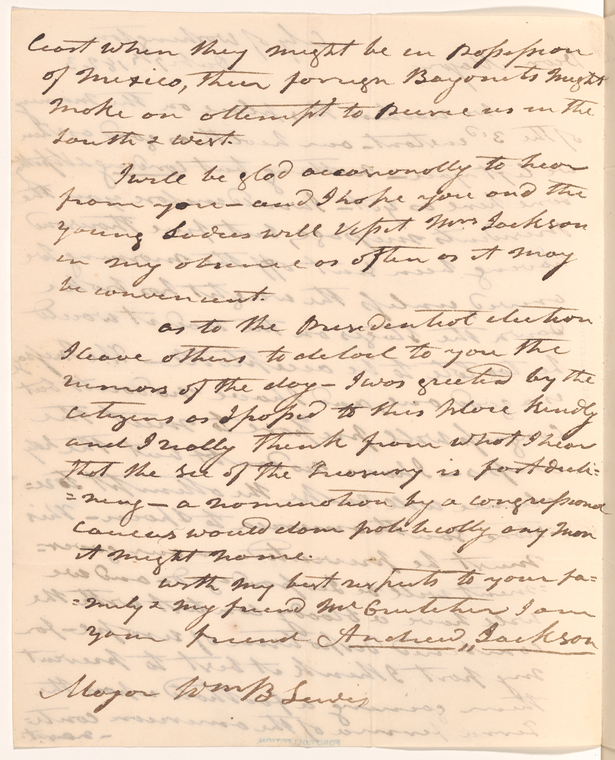 least when they might be in possession
of Mexico, their foreign Bayonets might
make an attempt to peirce us in the
South & west.
I will be glad occasionally to hear
from you – and I hope you and the
young Ladies will Visit Mrs Jackson
in my absence as often as it may
be convenient.
as to the Presidential election
I leave others to detail to you the
rumors of the day – I was greeted by the
citizens as I passed to this place kindly
and I really think from what I hear
that the Sec of the Treasury is fast decli=
=ning – a nomination by a congressional
caucus would dam politically any man
it might name.
with my best respects to your fa=
=mily & my friend Mr Crutcher I am
your friend Andrew Jackson
Major Wm B Lewis